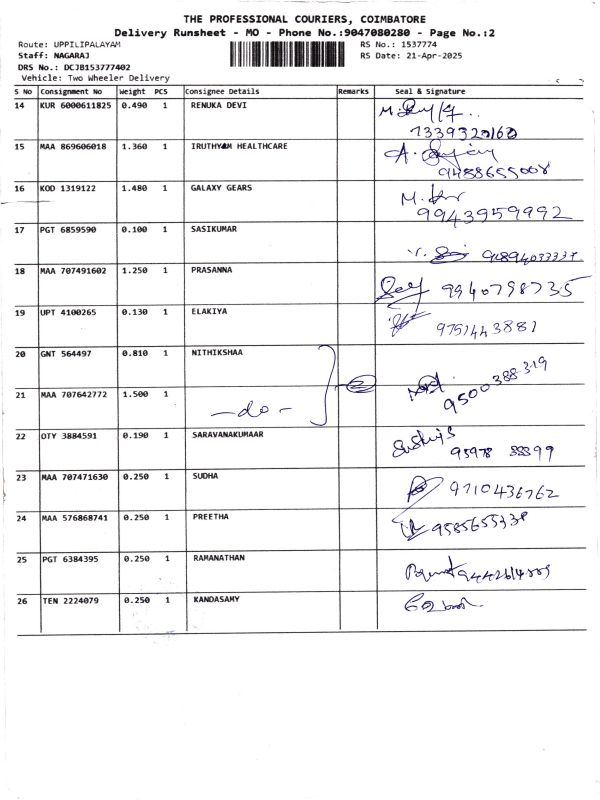 THE PROFESSIONAL COURIERS, COIMBATORE
Delivery Runsheet - MO - Phone No.:9047080280 - Page No.:2
Route: UPPILIPALAYAM
RS No.: 1537774
Staff: NAGARAJ
RS Date: 21-Apr-2025
DRS No.: DCJB153777402
Vehicle: Two Wheeler Delivery
S No Consignment No Weight PCS Consignee Details Remarks Seal & Signature
14 KUR 6000611825 0.490 1 RENUKA DEVI
7339320160
15 MAA 869606018 1.360 1 IRUTHYAM HEALTHCARE
9488655008
16 KOD 1319122 1.480 1 GALAXY GEARS
9943959992
17 PGT 6859590 0.100 1 SASIKUMAR
18 MAA 707491602 1.250 1 PRASANNA 9940798735
19 UPT 4100265 0.130 1 ELAKIYA
9751443881
20 GNT 564497 0.810 1 NITHIKSHAA
9500388319
21 MAA 707642772 1.500 1
-do-
22 OTY 3884591 0.190 1 SARAVANAKUMAAR
95978 88899
23 MAA 707471630 0.250 1 SUDHA
9710436762
24 MAA 576868741 0.250 1 PREETHA
9585655338
25 PGT 6384395 0.250 1 RAMANATHAN
26 TEN 2224079 0.250 1 KANDASAMY